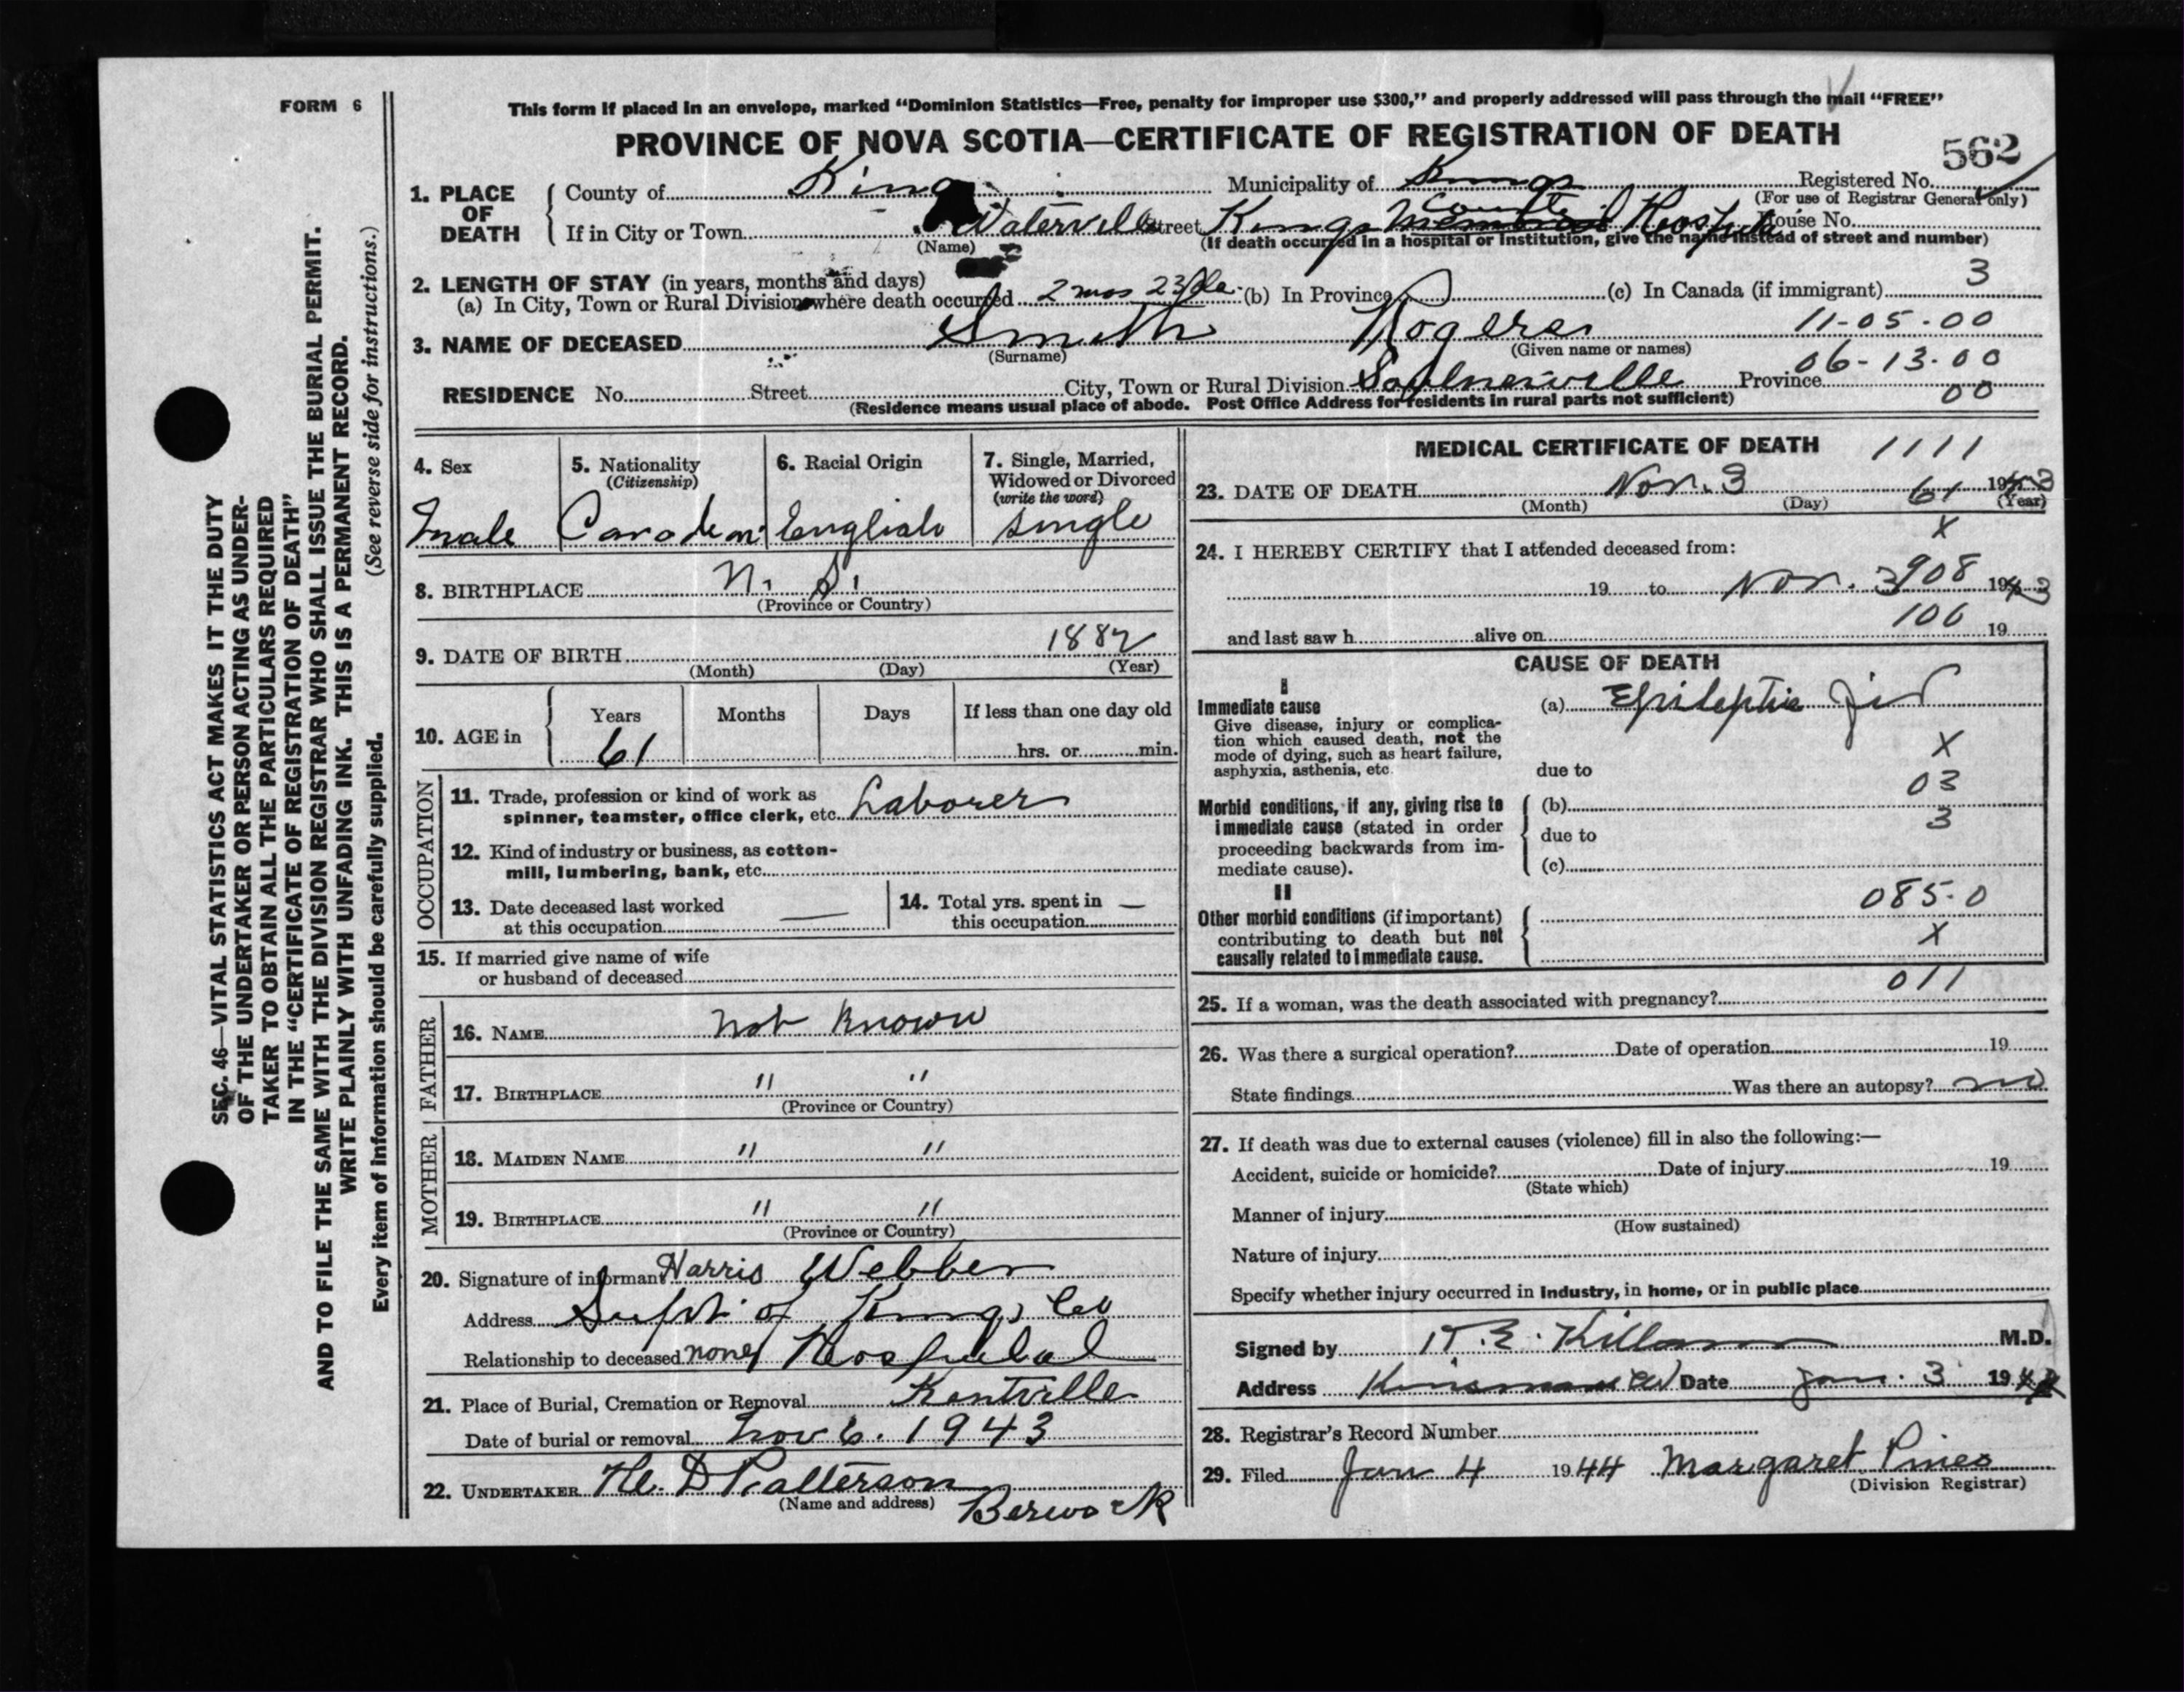 FORM 6
This form if placed in an envelope, marked “Dominion Statistics—Free, penalty for improper use $300,” and properly addressed will pass through the mail “FREE”
PROVINCE OF NOVA SCOTIA—CERTIFICATE OF REGISTRATION OF DEATH
562
1. PLACE OF DEATH
County of Kings Municipality of Kings Registered No.
(For use of Registrar General only)
If in City or Town Waterville Street Kings County Hospital House No.
(Name) (If death occurred in a hospital or institution, give the name instead of street and number)
2. LENGTH OF STAY (in years, months and days)
(a) In City, Town or Rural Division where death occurred 2 mos 23 da. (b) In Province (c) In Canada (if immigrant) 3
3. NAME OF DECEASED Smith Rogers 11-05-00
(Surname) (Given name or names)
06-13-00
RESIDENCE No. Street City, Town or Rural Division Saulnierville Province 00
(Residence means usual place of abode. Post Office Address for residents in rural parts not sufficient)
4. Sex
Male
5. Nationality
(Citizenship)
Canadian
6. Racial Origin
English
7. Single, Married,
Widowed or Divorced
(write the word)
single
8. BIRTHPLACE N. S.
(Province or Country)
9. DATE OF BIRTH 1882
(Month) (Day) (Year)
10. AGE in
Years Months Days If less than one day old
61 hrs. or min.
OCCUPATION
11. Trade, profession or kind of work as
spinner, teamster, office clerk, etc. Laborer
12. Kind of industry or business, as cotton-
mill, lumbering, bank, etc.
13. Date deceased last worked
at this occupation —
14. Total yrs. spent in
this occupation —
15. If married give name of wife
or husband of deceased
FATHER
16. NAME not known
17. BIRTHPLACE " "
(Province or Country)
MOTHER
18. MAIDEN NAME " "
19. BIRTHPLACE " "
(Province or Country)
20. Signature of informant Harris Webber
Address Supt of Kings Co
Relationship to deceased none Hospital
21. Place of Burial, Cremation or Removal Kentville
Date of burial or removal Nov 6. 1943
22. UNDERTAKER H. D Patterson
(Name and address) Berwick
MEDICAL CERTIFICATE OF DEATH 1111
23. DATE OF DEATH Nov. 3 61 1943
(Month) (Day) (Year)
X
24. I HEREBY CERTIFY that I attended deceased from:
19 to Nov. 3 908 1943
100
and last saw h alive on 19
CAUSE OF DEATH
I
Immediate cause
Give disease, injury or complica-
tion which caused death, not the
mode of dying, such as heart failure,
asphyxia, asthenia, etc.
(a) Epileptic fit
X
due to
03
Morbid conditions, if any, giving rise to
immediate cause (stated in order
proceeding backwards from im-
mediate cause).
(b)
3
due to
(c)
II
Other morbid conditions (if important)
contributing to death but not
causally related to immediate cause.
085.0
X
011
25. If a woman, was the death associated with pregnancy?
26. Was there a surgical operation? Date of operation 19
State findings Was there an autopsy? no
27. If death was due to external causes (violence) fill in also the following:—
Accident, suicide or homicide? Date of injury 19
(State which)
Manner of injury
(How sustained)
Nature of injury
Specify whether injury occurred in industry, in home, or in public place
Signed by Killam M.D.
Address Date Jan. 3 19
28. Registrar's Record Number
29. Filed Jan 4 1944 Margaret Pines
(Division Registrar)
SEC. 46—VITAL STATISTICS ACT MAKES IT THE DUTY
OF THE UNDERTAKER OR PERSON ACTING AS UNDER-
TAKER TO OBTAIN ALL THE PARTICULARS REQUIRED
IN THE “CERTIFICATE OF REGISTRATION OF DEATH”
AND TO FILE THE SAME WITH THE DIVISION REGISTRAR WHO SHALL ISSUE THE BURIAL PERMIT.
WRITE PLAINLY WITH UNFADING INK. THIS IS A PERMANENT RECORD.
Every item of information should be carefully supplied. (See reverse side for instructions.)